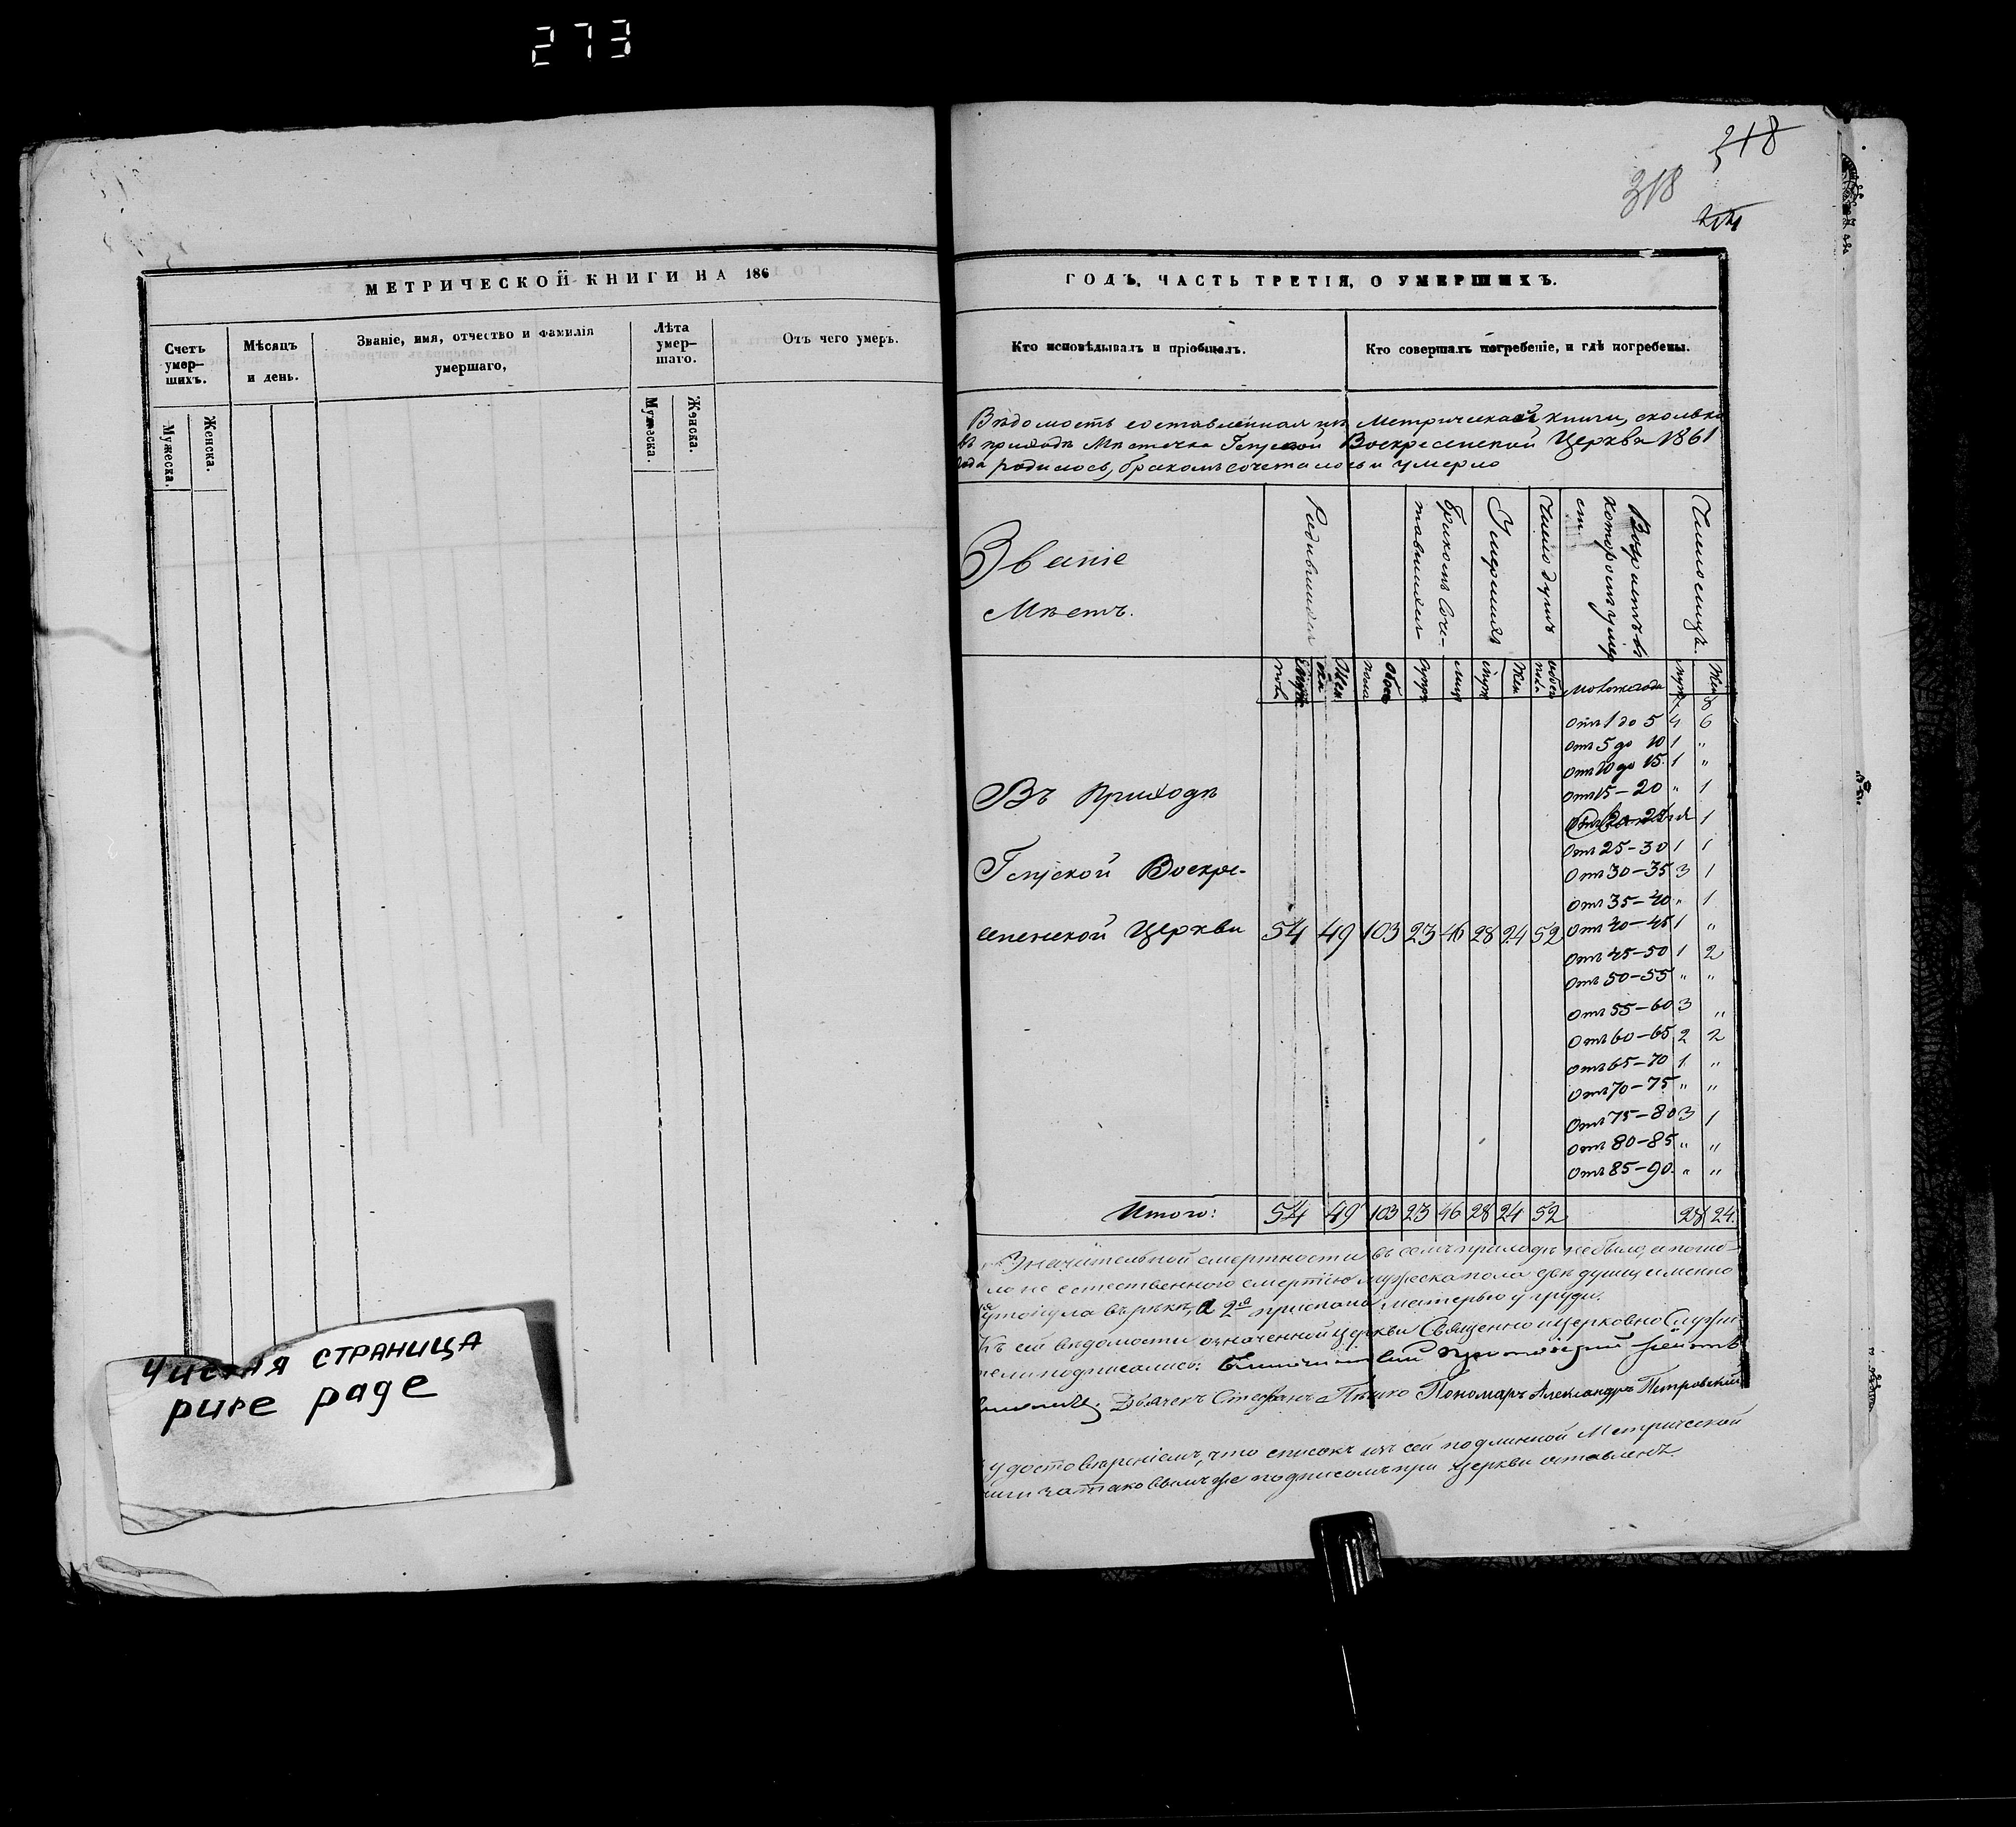 273
318
318
МЕТРИЧЕСКОЙ КНИГИ НА 186
ГОДЪ, ЧАСТЬ ТРЕТІЯ, О УМЕРШИХЪ.
Счетъ умер-шихъ.
Мѣсяцъ и день.
Званіе, имя, отчество и фамилія умершаго,
Лѣта умер-шаго.
Отъ чего умеръ.
Мужеска.
Женска.
Мужеска.
Женска.
Кто исповѣдывалъ и пріобщалъ.
Кто совершалъ погребеніе, и гдѣ погребены.
Вѣдомость составленная изъ Метрической книги, сколько
въ приходѣ Мѣстечка Воскресенской Церкви 1861
года родилось, бракомъ сочеталось и умерло
Званіе
Мѣстъ.
Родившихся
Бракомъ Соче-
тавшихся
Умершихъ
Число душъ
Возрастъ въ
которомъ умер
Жен
обоего
пола
Муж
Жен
Муж
Жен
8
Отъ 1 до 5 4 6
Отъ 5 до 10 1 "
Отъ 10 до 15. 1 "
Отъ 15 – 20 " 1
1
Отъ 25 – 30 1 1
Отъ 30 – 35 3 1
Отъ 35 – 40 " 1
Отъ 40 – 45 1 "
Отъ 45 – 50 1 2
Отъ 50 – 55 " "
Отъ 55 – 60 3 "
Отъ 60 – 65 2 2
Отъ 65 – 70 1 "
Отъ 70 – 75 " "
Отъ 75 – 80 3 1
Отъ 80 – 85 " "
Отъ 85 – 90. " "
Въ Приходѣ
Воскре-
сенской Церкви 54 49 103 23 46 28 24 52
Итого: 54 49 103 23 46 28 24 52 28 24.
Значительной смертности въ семъ приходѣ не было, а погиб-
ло не естественного смертію мужеска пола двѣ души, именно
утонула въ рѣкѣ, а 2я приспана матерью у груди.
Къ сей ведомости означенной церкви Священно и Церковно Служи-
тели подписались:
Дьячекъ Стефанъ Пономарь Александръ Петровскій
удостовѣреніемъ, что списокъ изъ сей подлинной Метрической
книги за таковымъ же подписомъ при церкви оставленъ.
Чистая страница
pure page